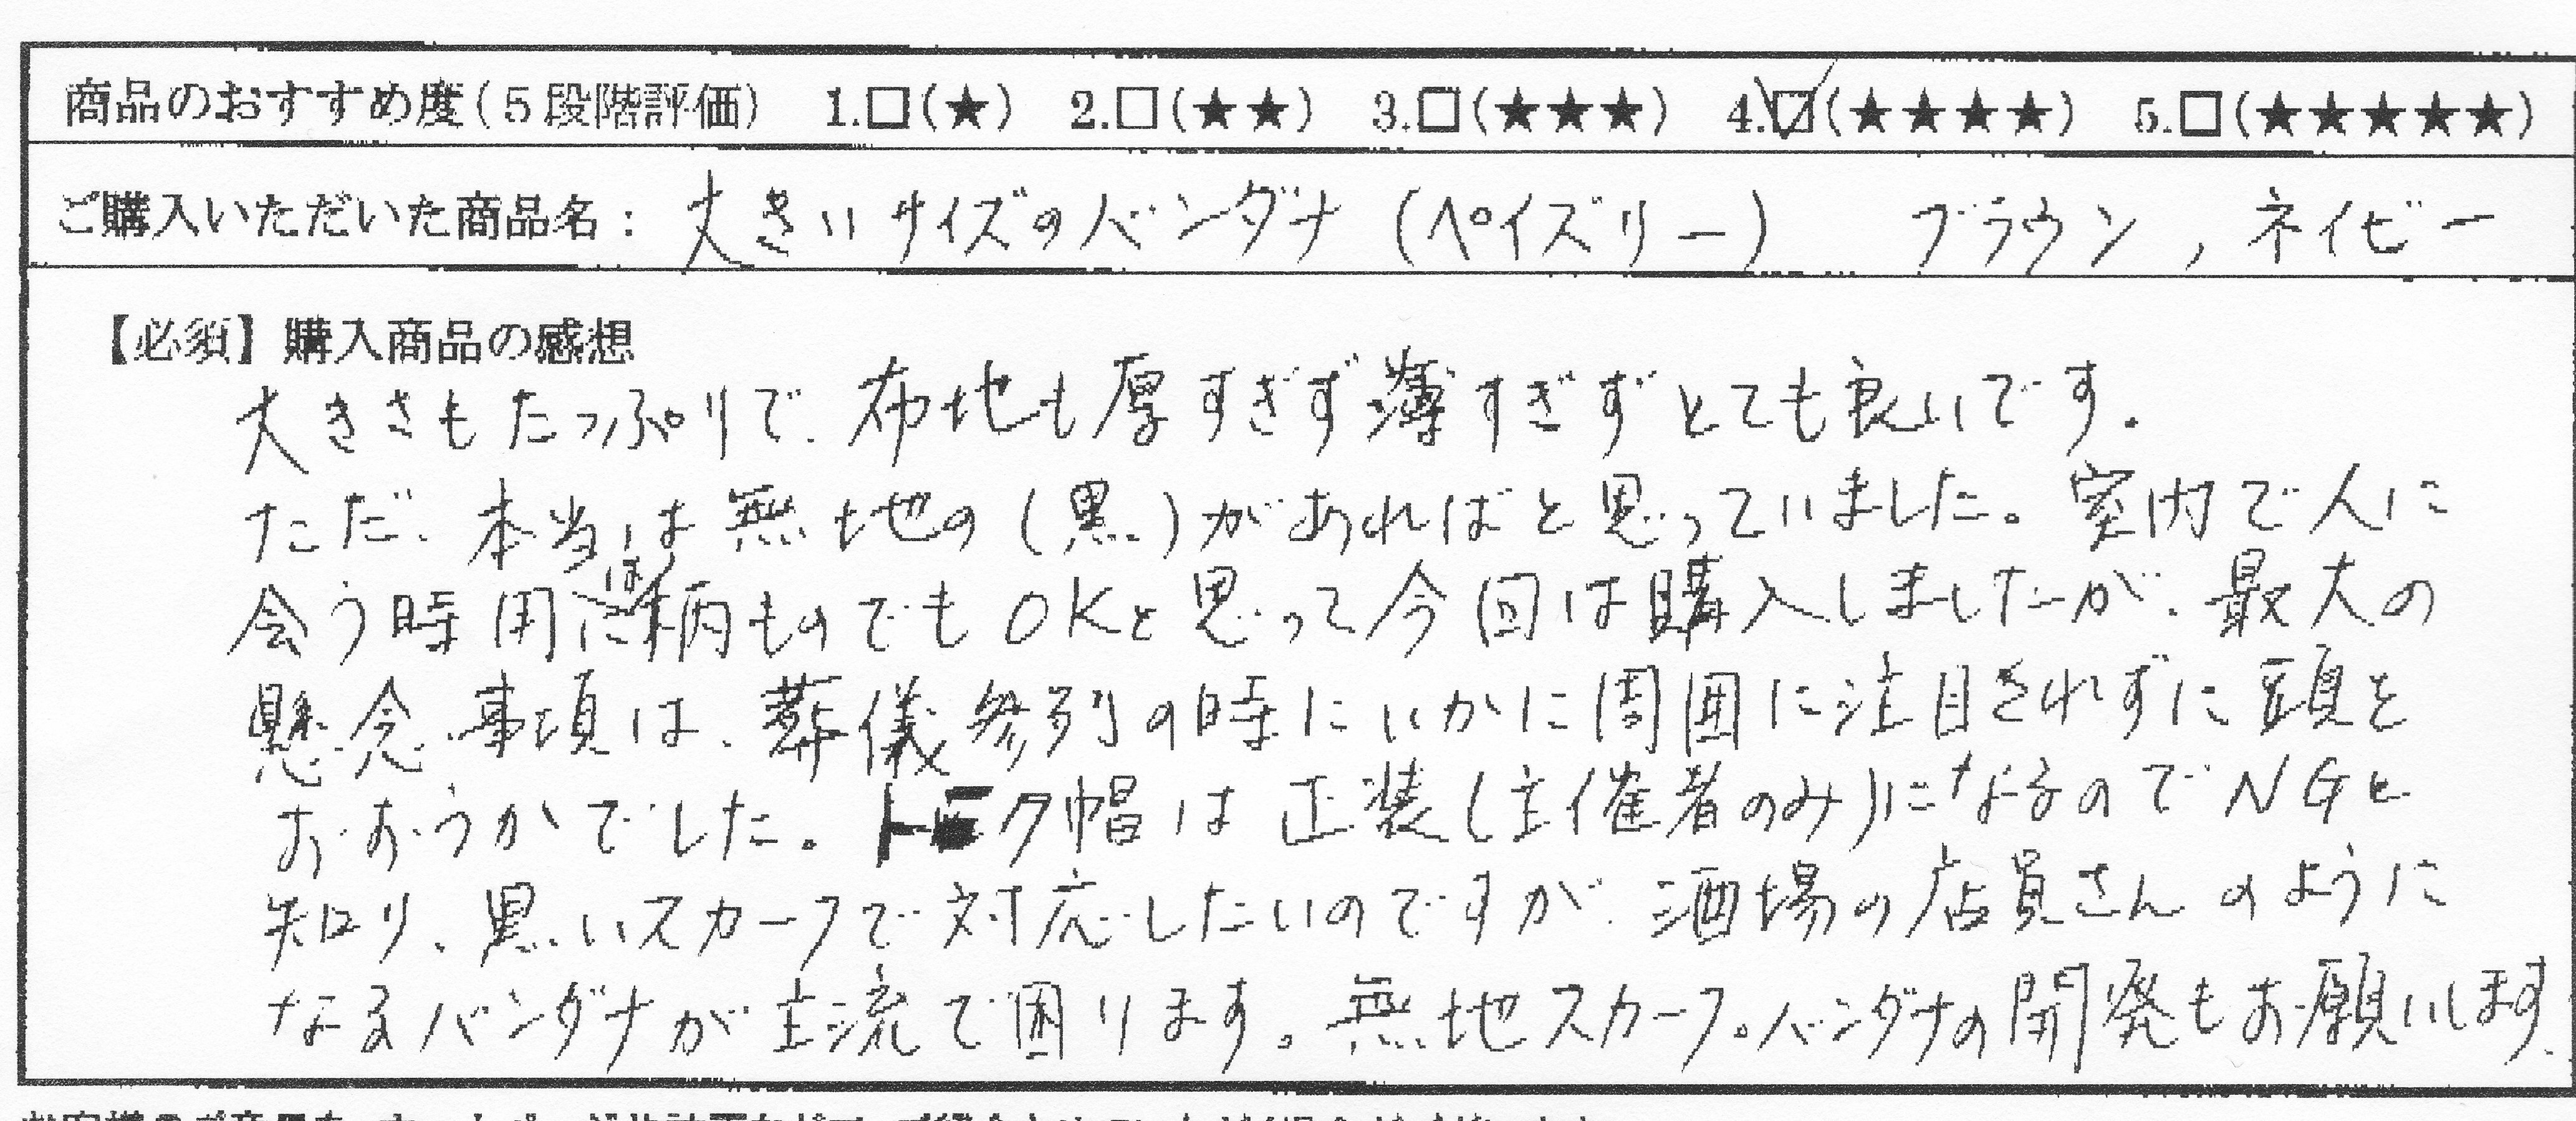 商品のおすすめ度(5段階評価) 1.□(★) 2.□(★★) 3.□(★★★) 4.☑(★★★★) 5.□(★★★★★)
ご購入いただいた商品名: 大きいサイズのバンダナ (ペイズリー) ブラウン, ネイビー
【必須】購入商品の感想
大きさもたっぷりで、布地も厚すぎず薄すぎずとても良いです。
ただ、本当は無地の(黒)があればと思っていました。室内で人に
会う時用には柄ものでもOKと思って今回は購入しましたが、最大の
懸念事項は、葬儀参列の時にいかに周囲に注目されずに頭を
おおうかでした。トーク帽は正装(主催者のみ)になるのでNGと
知り、黒いスカーフで対応したいのですが、酒場の店員さんのように
なるバンダナが主流で困ります。無地スカーフ。バンダナの開発もお願いします。